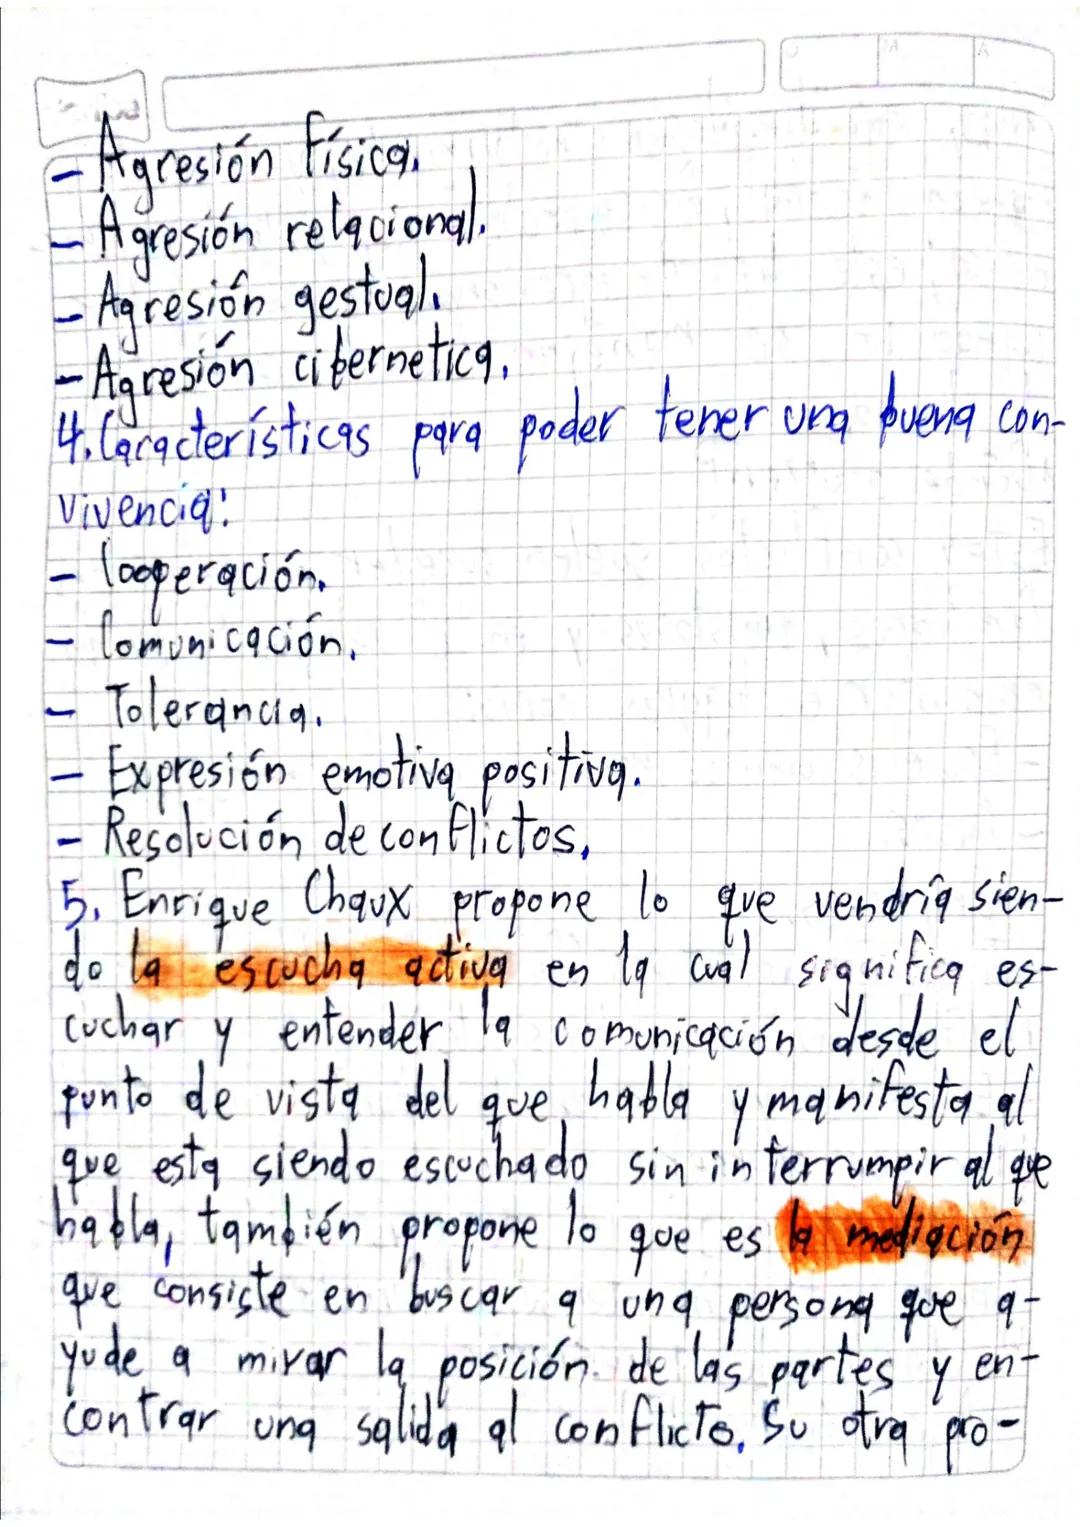 - Agresión Física.
- Agresión relacional.
- Agresión gestual.
- Agresión cibernetica.
4. Características para poder tener una buena con-
vivencia:
- Cooperación.
- Comunicación.
- Tolerancia.
- Expresión emotiva positiva.
- Resolución de conflictos.
5. Enrique Chaux propone lo que vendría sien-
do la escucha activa en la cual significa es-
cuchar y entender la comunicación desde el
punto de vista del que habla y manifesta al
que esta siendo escuchado sin interrumpir al que
habla, también propone lo que es la mediación
que consiste en buscar a una persona que a-
yude a mirar la posición de las partes y en-
contrar una salida al conflicto. Su otra pro-